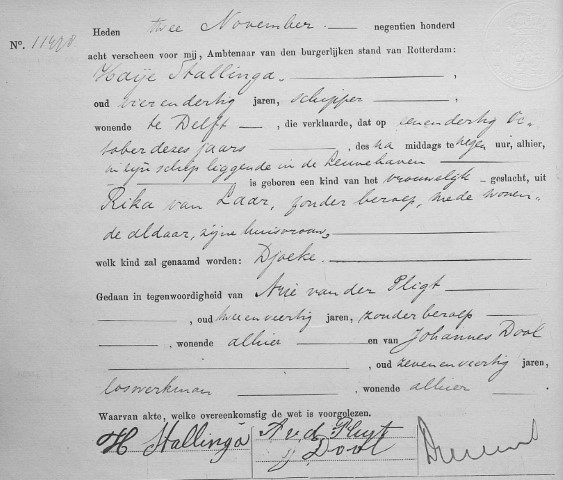 Heden twee November. negentien honderd
N°.
acht verscheen voor mij, Ambtenaar van den burgerlijken stand van Rotterdam:
Haije Stallinga.
oud vierendertig jaren, schipper
wonende te Delft, die verklaarde, dat op eenendertig Oc-
tober dezes jaars, des na middags te negen uur, alhier,
in zijn schip liggende in de Leuvehaven
is geboren een kind van het vrouwelijk geslacht, uit
Rika van Laar, zonder beroep, mede wonen-
de aldaar, zijne huisvrouw,
welk kind zal genaamd worden: Djoeke.
Gedaan in tegenwoordigheid van Arie van der Pligt
, oud tweeenveertig jaren, zonder beroep
, wonende alhier en van Johannes Dool
, oud zevenenveertig jaren,
loswerkman, wonende alhier.
Waarvan akte, welke overeenkomstig de wet is voorgelezen.
H Stallinga A v d Pligt
J Dool